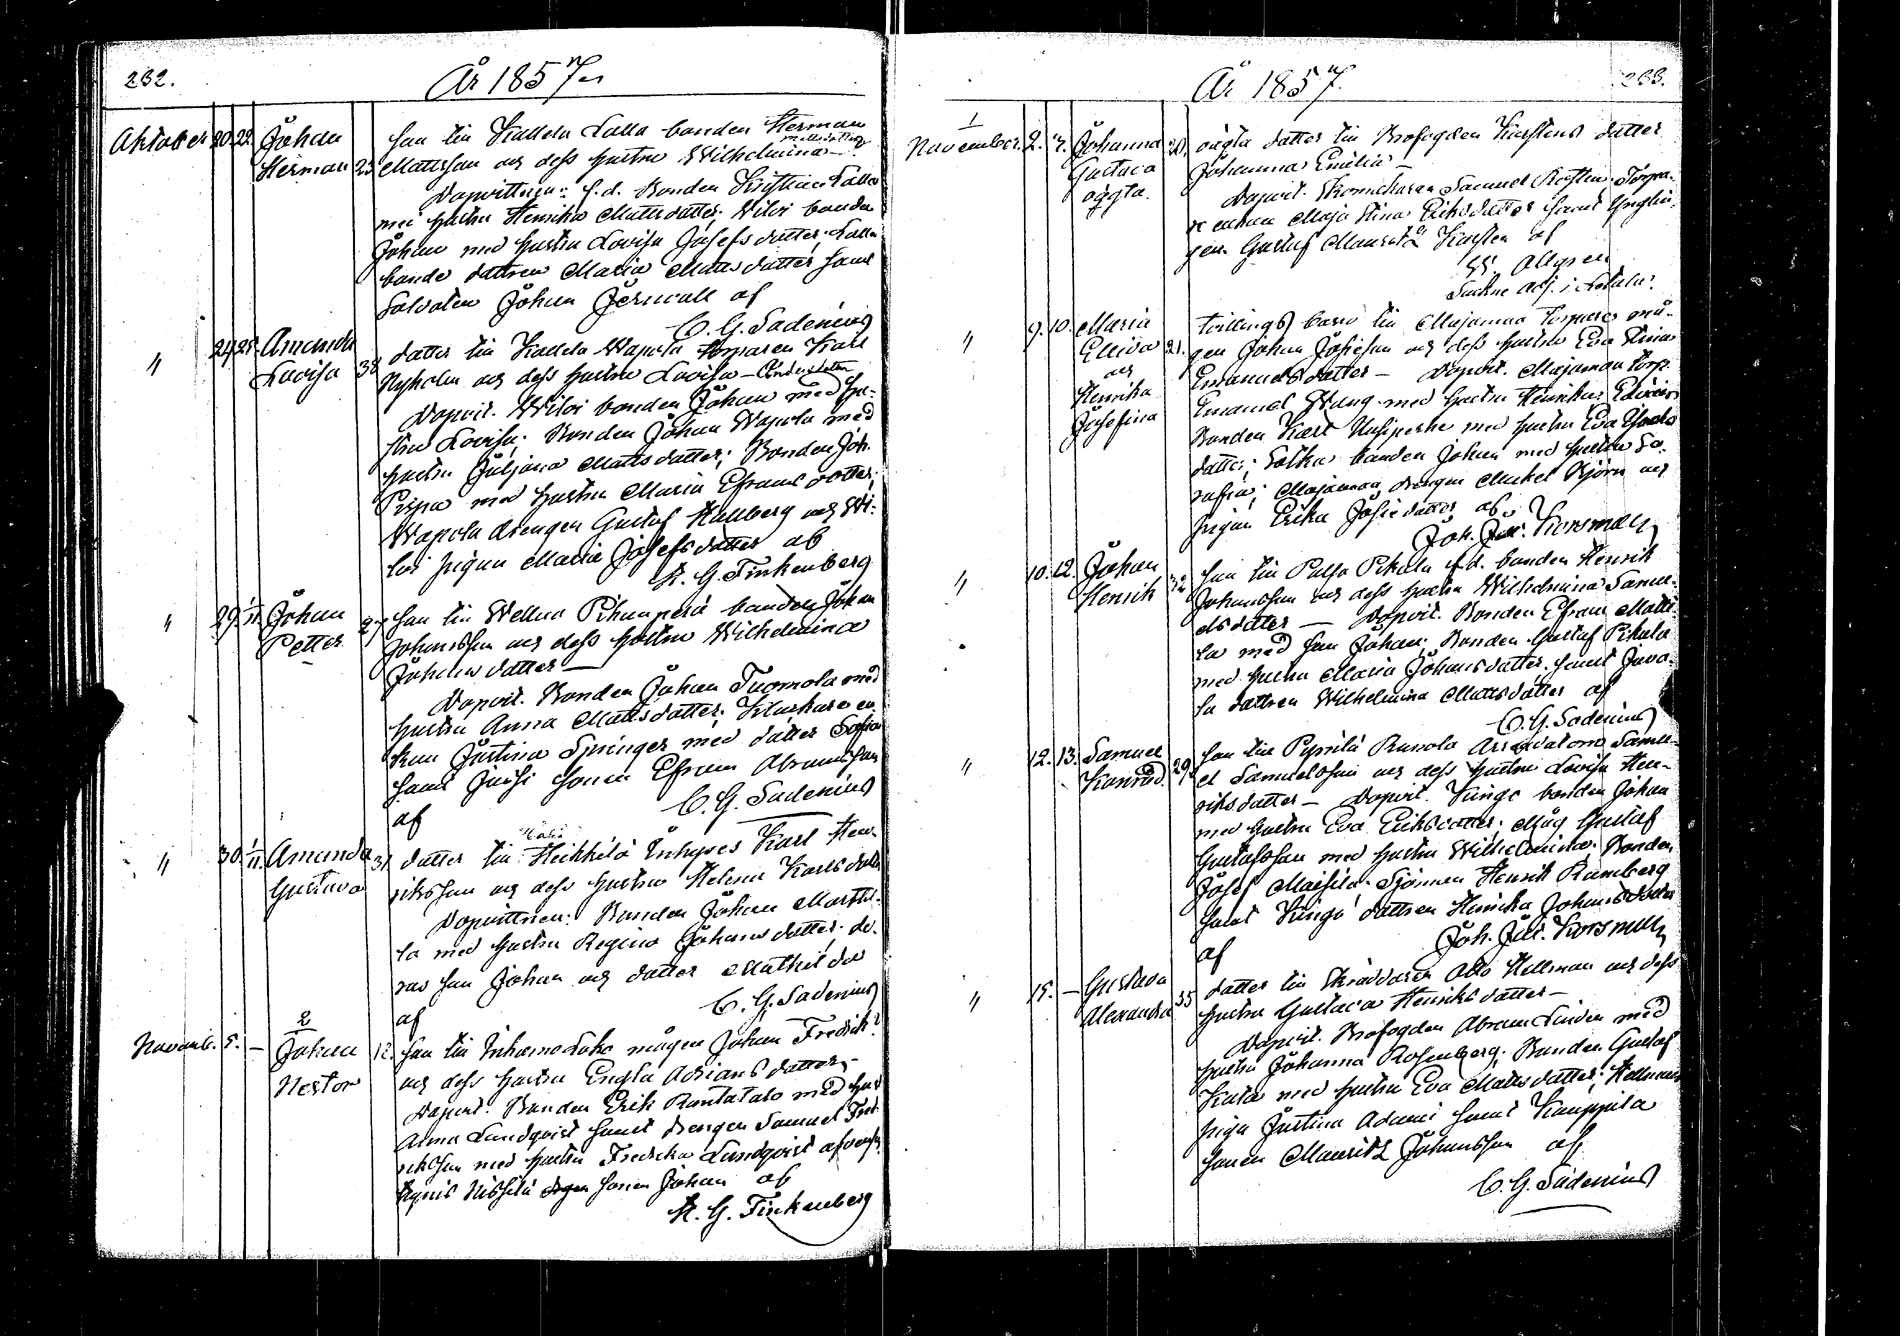 232.
År 1857
Oktober 20. 22. Johan
Herman 23
son till Kallela Lalla bonden Herman
Mattsson och dess hustru Wilhelmina
Dopvittnen: f.d. Bonden Kristian Lalla
med hustru Henrika Mattsdotter. Wiloi bonden
Johan med hustru Lovisa Josefsdotter. Lalla
bonde dottren Maria Mattsdotter samt
Soldaten Johan Jernvall af
C. G. Sadenius
" 24 25. Amanda
Lovisa 38
dotter till Kallela Wapola torparen Karl
Nyholm och dess hustru Lovisa
Dopvit. Wiloi bonden Johan med hu-
stru Lovisa; Bonden Johan Wapola med
hustru Juljana Mattsdotter; Bonden Joh.
Pispa med hustru Maria Efraimsdotter;
Wapola drengen Gustaf Hallberg och Wi-
loi pigan Maria Josefsdotter af
K. G. Finkenberg
" 29. 1/11 Johan
Petter 27
son till Wellua bonden Johan
Johansson och dess hustru Wilhelmina
Johansdotter
Dopvit. Bonden Johan Tuomola med
hustru Anna Mattsdotter;
Justina Springer med dotter Sofia
samt sonen Efraim Abramsson
af C. G. Sadenius
" 30. 1/11. Amanda
Gustava 31
dotter till Heikkilä Inhyses Karl Hen-
riksson och dess hustru Helena Karlsdotter
Dopvittnen: Bonden Johan Marttila
med hustru Regina Johansdotter de-
ras son Johan och dotter Mathilda
af C. G. Sadenius
2
Novemb. 5. — Johan
Nestor 12.
son till mågen Johan Fredrik
och dess hustru Engla Adriansdotter
Dopvit. Bonden Erik Rantatalo med hust
Anna Lundqvist samt drengen Samuel Fred-
riksson med hustru Fredrika Lundqvist
sonen Johan af
K. G. Finkenberg
233.
År 1857.
1
November. 2. 7. Johanna
Gustava
oägta. 20.
oägta dotter till Brofogden Karstens dotter
Johanna Emilia
Dopvit. Skomakaren Samuel Torpa-
re enkan Maja Stina Eriksdotter samt Ynglin
gen Gustaf Mauritz Karsten af
Allgren
" 9. 10. Maria
Elliva
och
Henrika
Josefina 21.
tvillings barn till Majamaa torpares må-
gen Johan Josefsson och dess hustru Eva Stina
Emanuelsdotter — Dopvit. Majamaa torp.
Emanuel Wang med hustru Henrika
Bonden Karl med hustru Eva
dotter; bonden Johan med hustru So-
fia; Majamaa drengen Mickel Björn och
pigan Erika Josefsdotter af
Joh. Jac. Korsman
" 10. 12. Johan
Henrik 32
son till Pikala f.d. bonden Henrik
Johansson och dess hustru Wilhelmina Samu-
elsdotter — Dopvit. Bonden Efraim Matti
la med son Johan; Bonden Gustaf Pikala
med hustru Maria Johansdotter samt
dottren Wilhelmina Mattsdotter af
C. G. Sadenius
" 12. 13. Samuel
Konrad 29.
son till Pynnilä Samu-
el Samuelsson och dess hustru Lovisa Hen-
riksdotter — Dopvit. bonden Johan
med hustru Eva Eriksdotter; Måg Gustaf
Gustafsson med hustru Wilhelmina. Bonden
Josef Sjöman Henrik Ramberg
samt dottren Henrika Johansdotter
af Joh. Jac. Korsman
" 15. — Gustava
Alexandra 35
dotter till Skräddaren Otto Hellman och dess
hustru Gustava Henriksdotter —
Dopvit. Brofogden Abram Linden med
hustru Johanna Rosenberg. Bonden Gustaf
med hustru Eva Mattsdotter; Hellmans
piga Justina Adami samt Kauppila
sonen Mauritz Johansson af
C. G. Sadenius